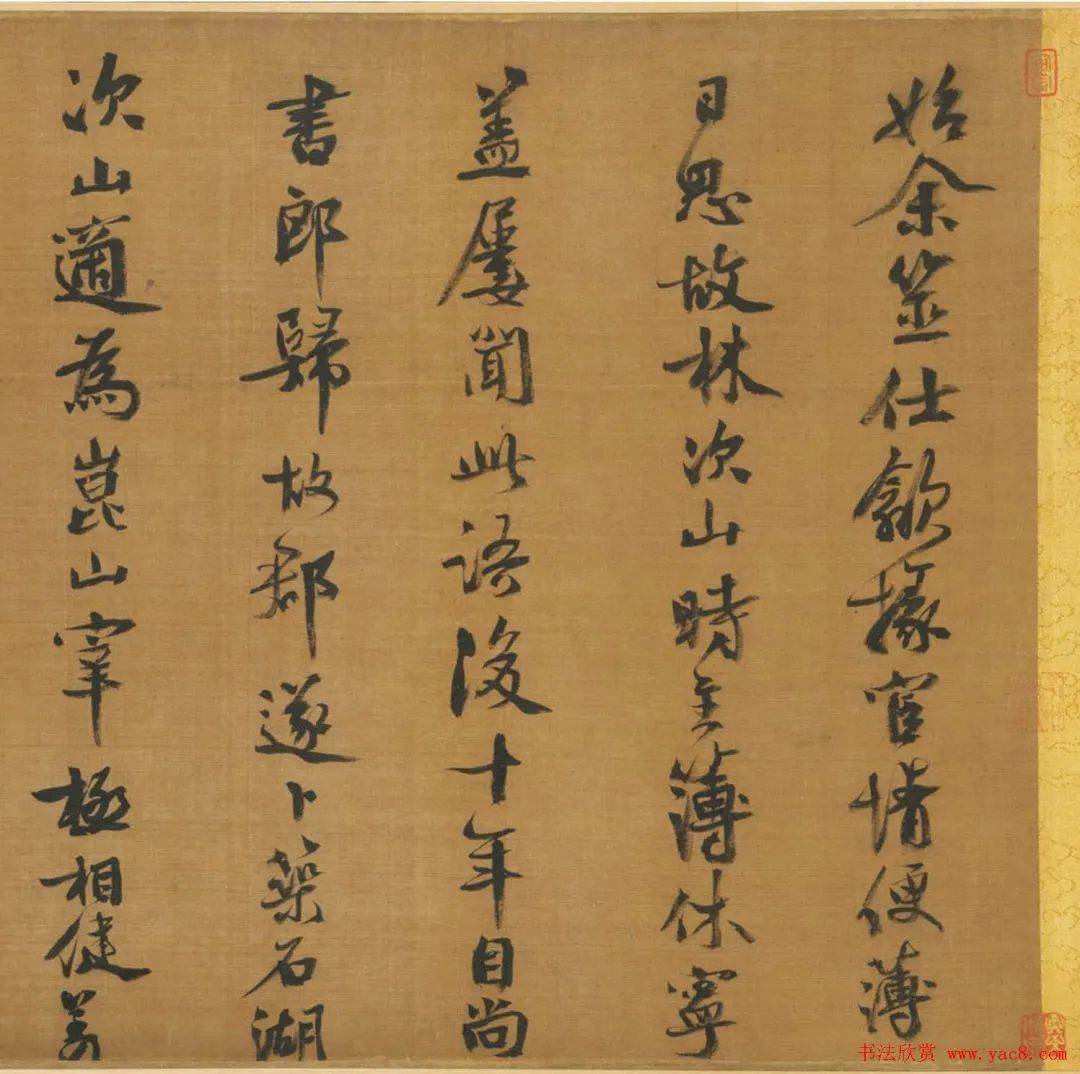 始余筮仕歙掾宦情便薄
日思故林次山時主簿休寧
盖屢聞此語後十年自尚
書郎歸故郡遂卜築石湖
次山適為崑山宰極相健羨
书法欣赏 www.yac8.com